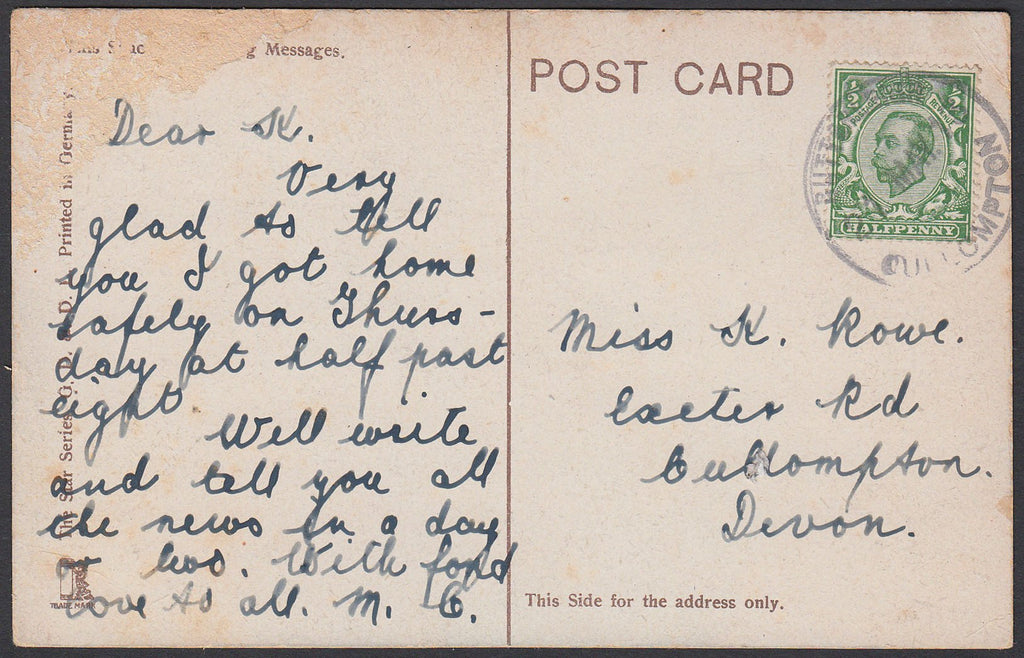 Messages.
Dear K.
Very
glad to tell
you I got home
safely on Thurs-
day at half past
eight
Well write
and tell you all
the news in a day
or two. With fond
love to all. M. C.
The Star Series. G. D. & D. L. Printed in Germany.
TRADE MARK
POST CARD
½ ½
POSTAGE REVENUE
HALFPENNY
CULLOMPTON
Miss K. Rowe.
Exeter Rd
Cullompton.
Devon.
This Side for the address only.